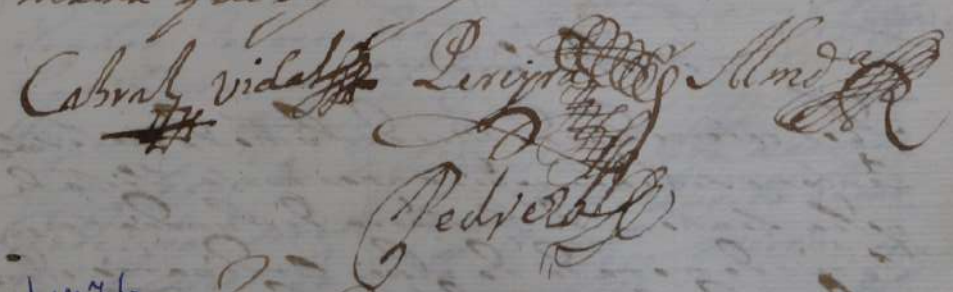 Cabral Vidal Pereyra Almdª
Pedroza